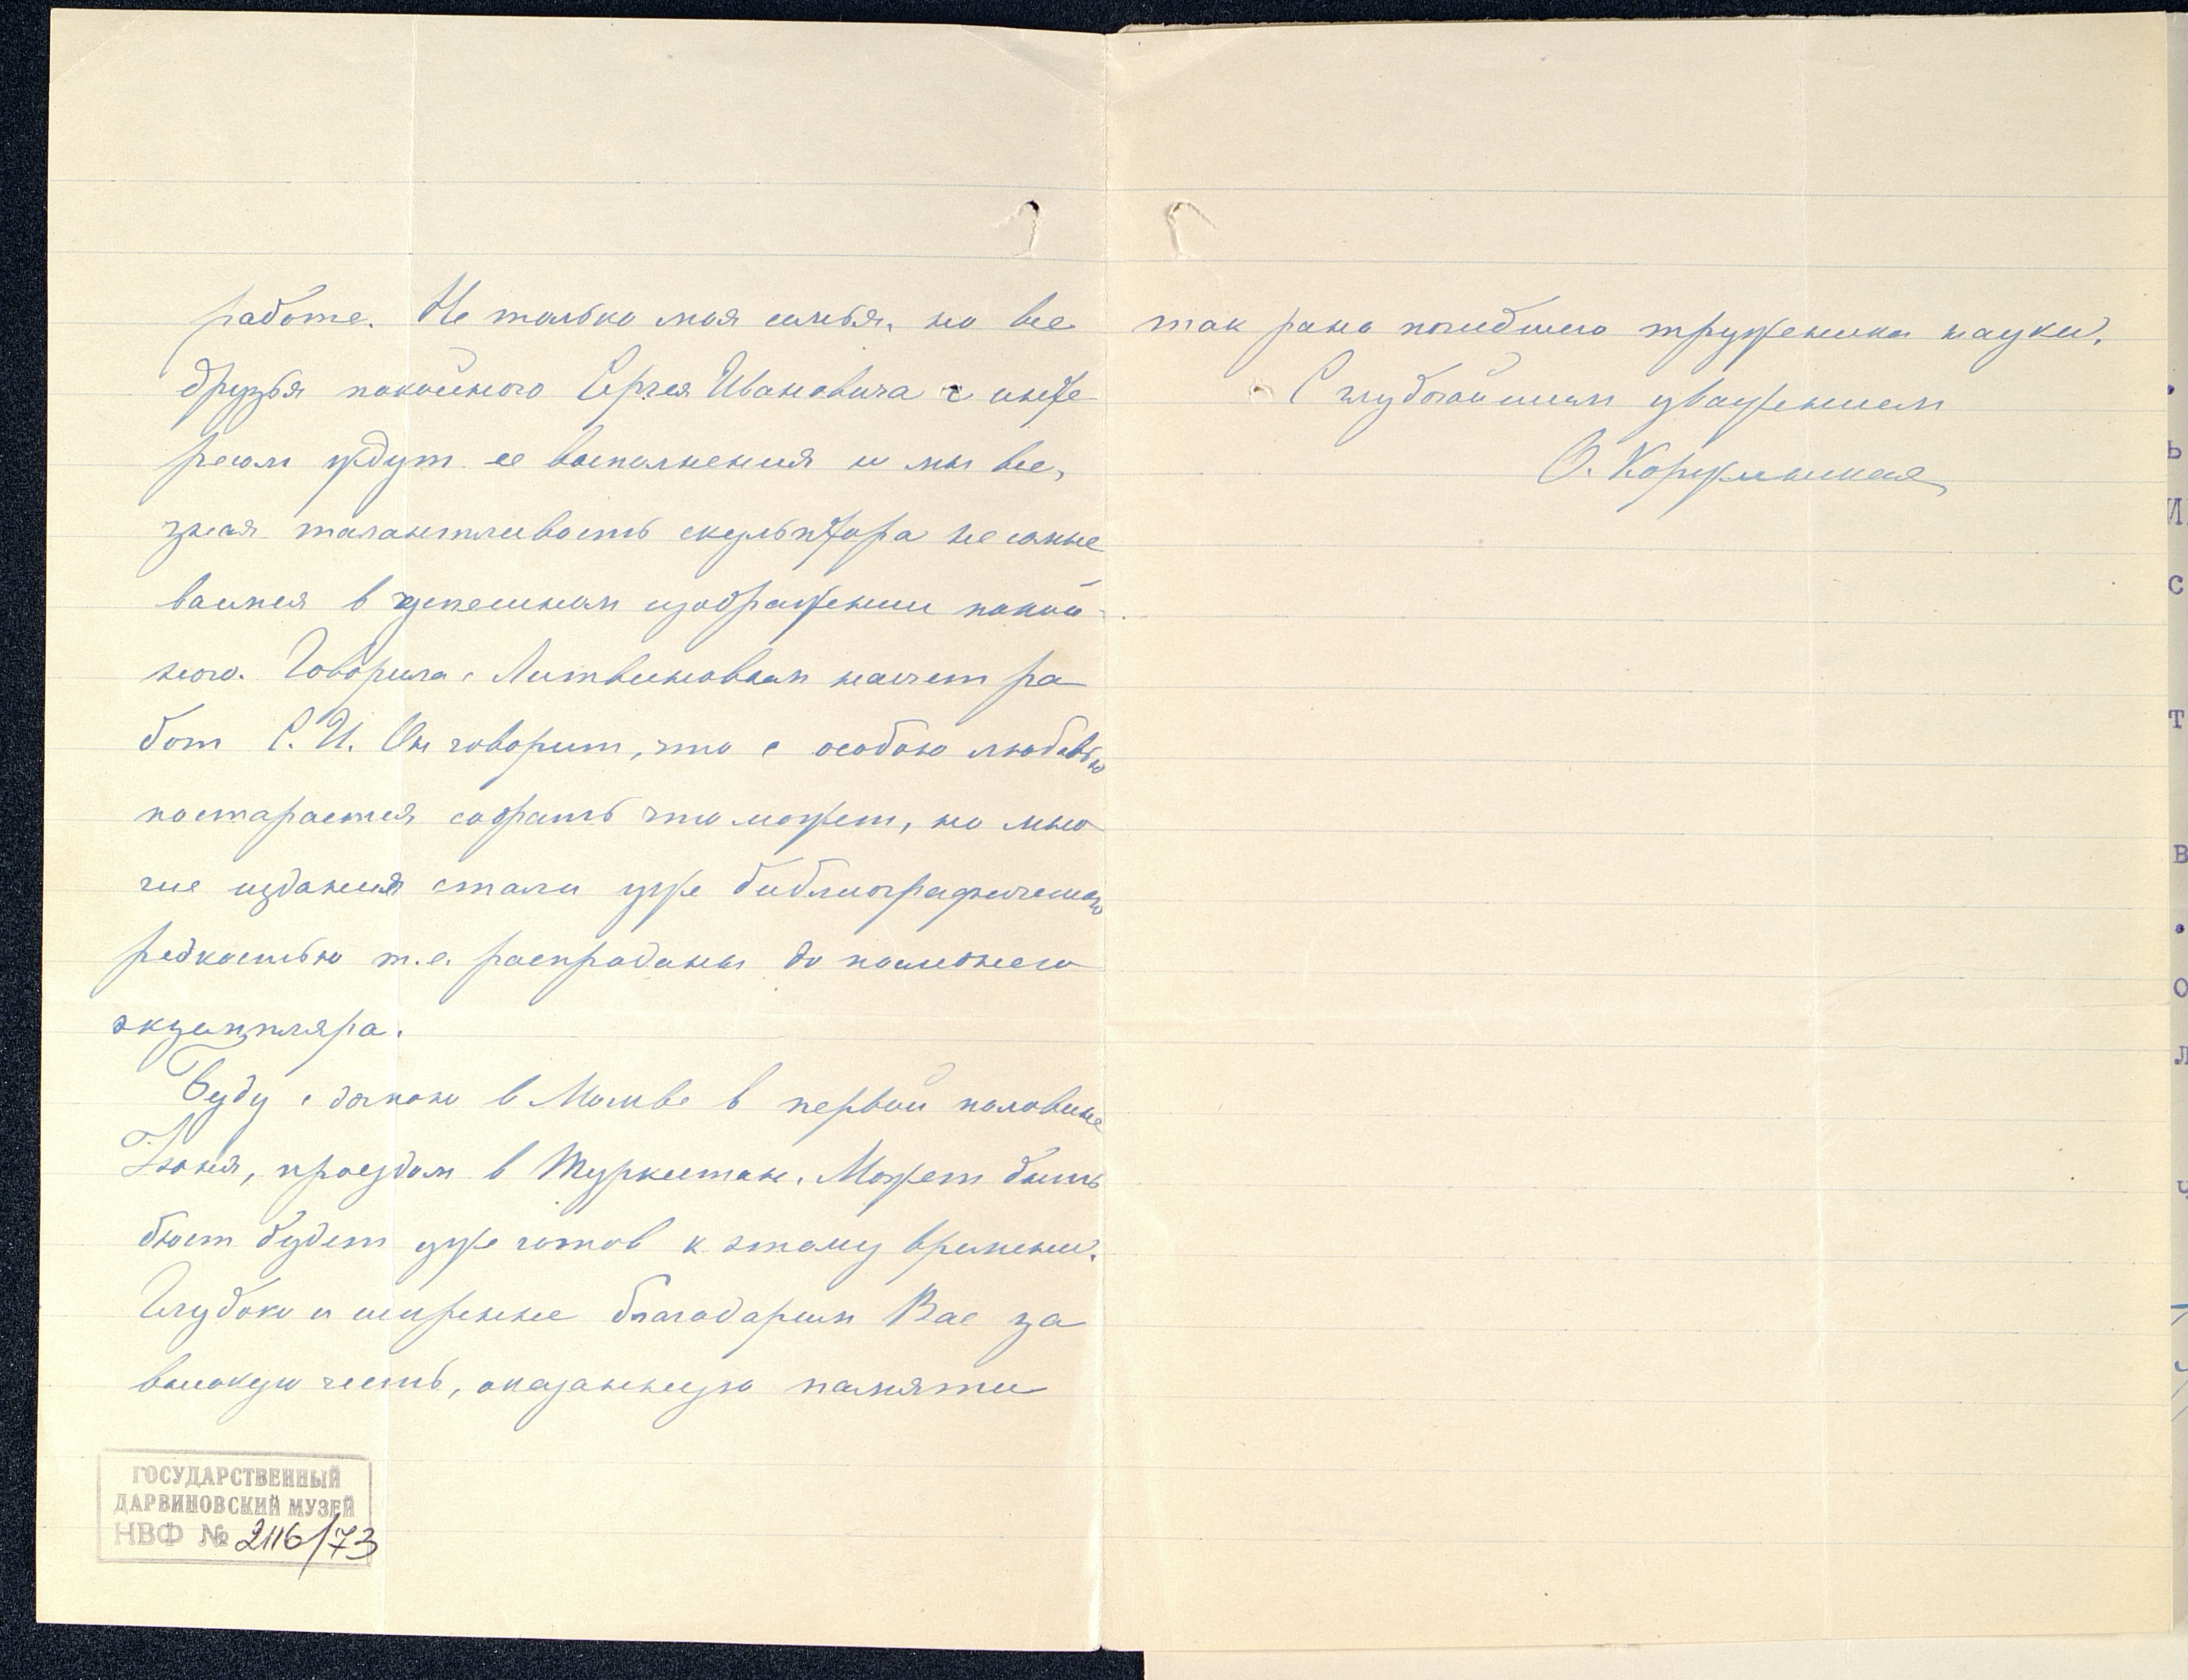 работе. Не только моя семья, но все
друзья покойного Сергея Ивановича с инте
ресом ждут ее выполнения и мы все,
зная талантливость скульптора не сомне
ваимся в успешном изображении покой-
ного. Говорила с Литвиновым насчет ра
бот С. И. Он говорит, что с особою любовью
постарается собрать что может, но мно
гие издания стали уже библиографическою
редкостью т.е. распроданы до последнего
экземпляра.
Буду с дочкою в Москве в первой половине
Июня, проездом в Туркестан. Может быть
бюст будет уже готов к этому времени.
Глубоко и искренне благодарим Вас за
высокую честь, оказанную памяти
ГОСУДАРСТВЕННЫЙ
ДАРВИНОВСКИЙ МУЗЕЙ
НВФ № 2116/73
так рано погибшего труженика науки.
С глубочайшим уважением
О. Коржинская